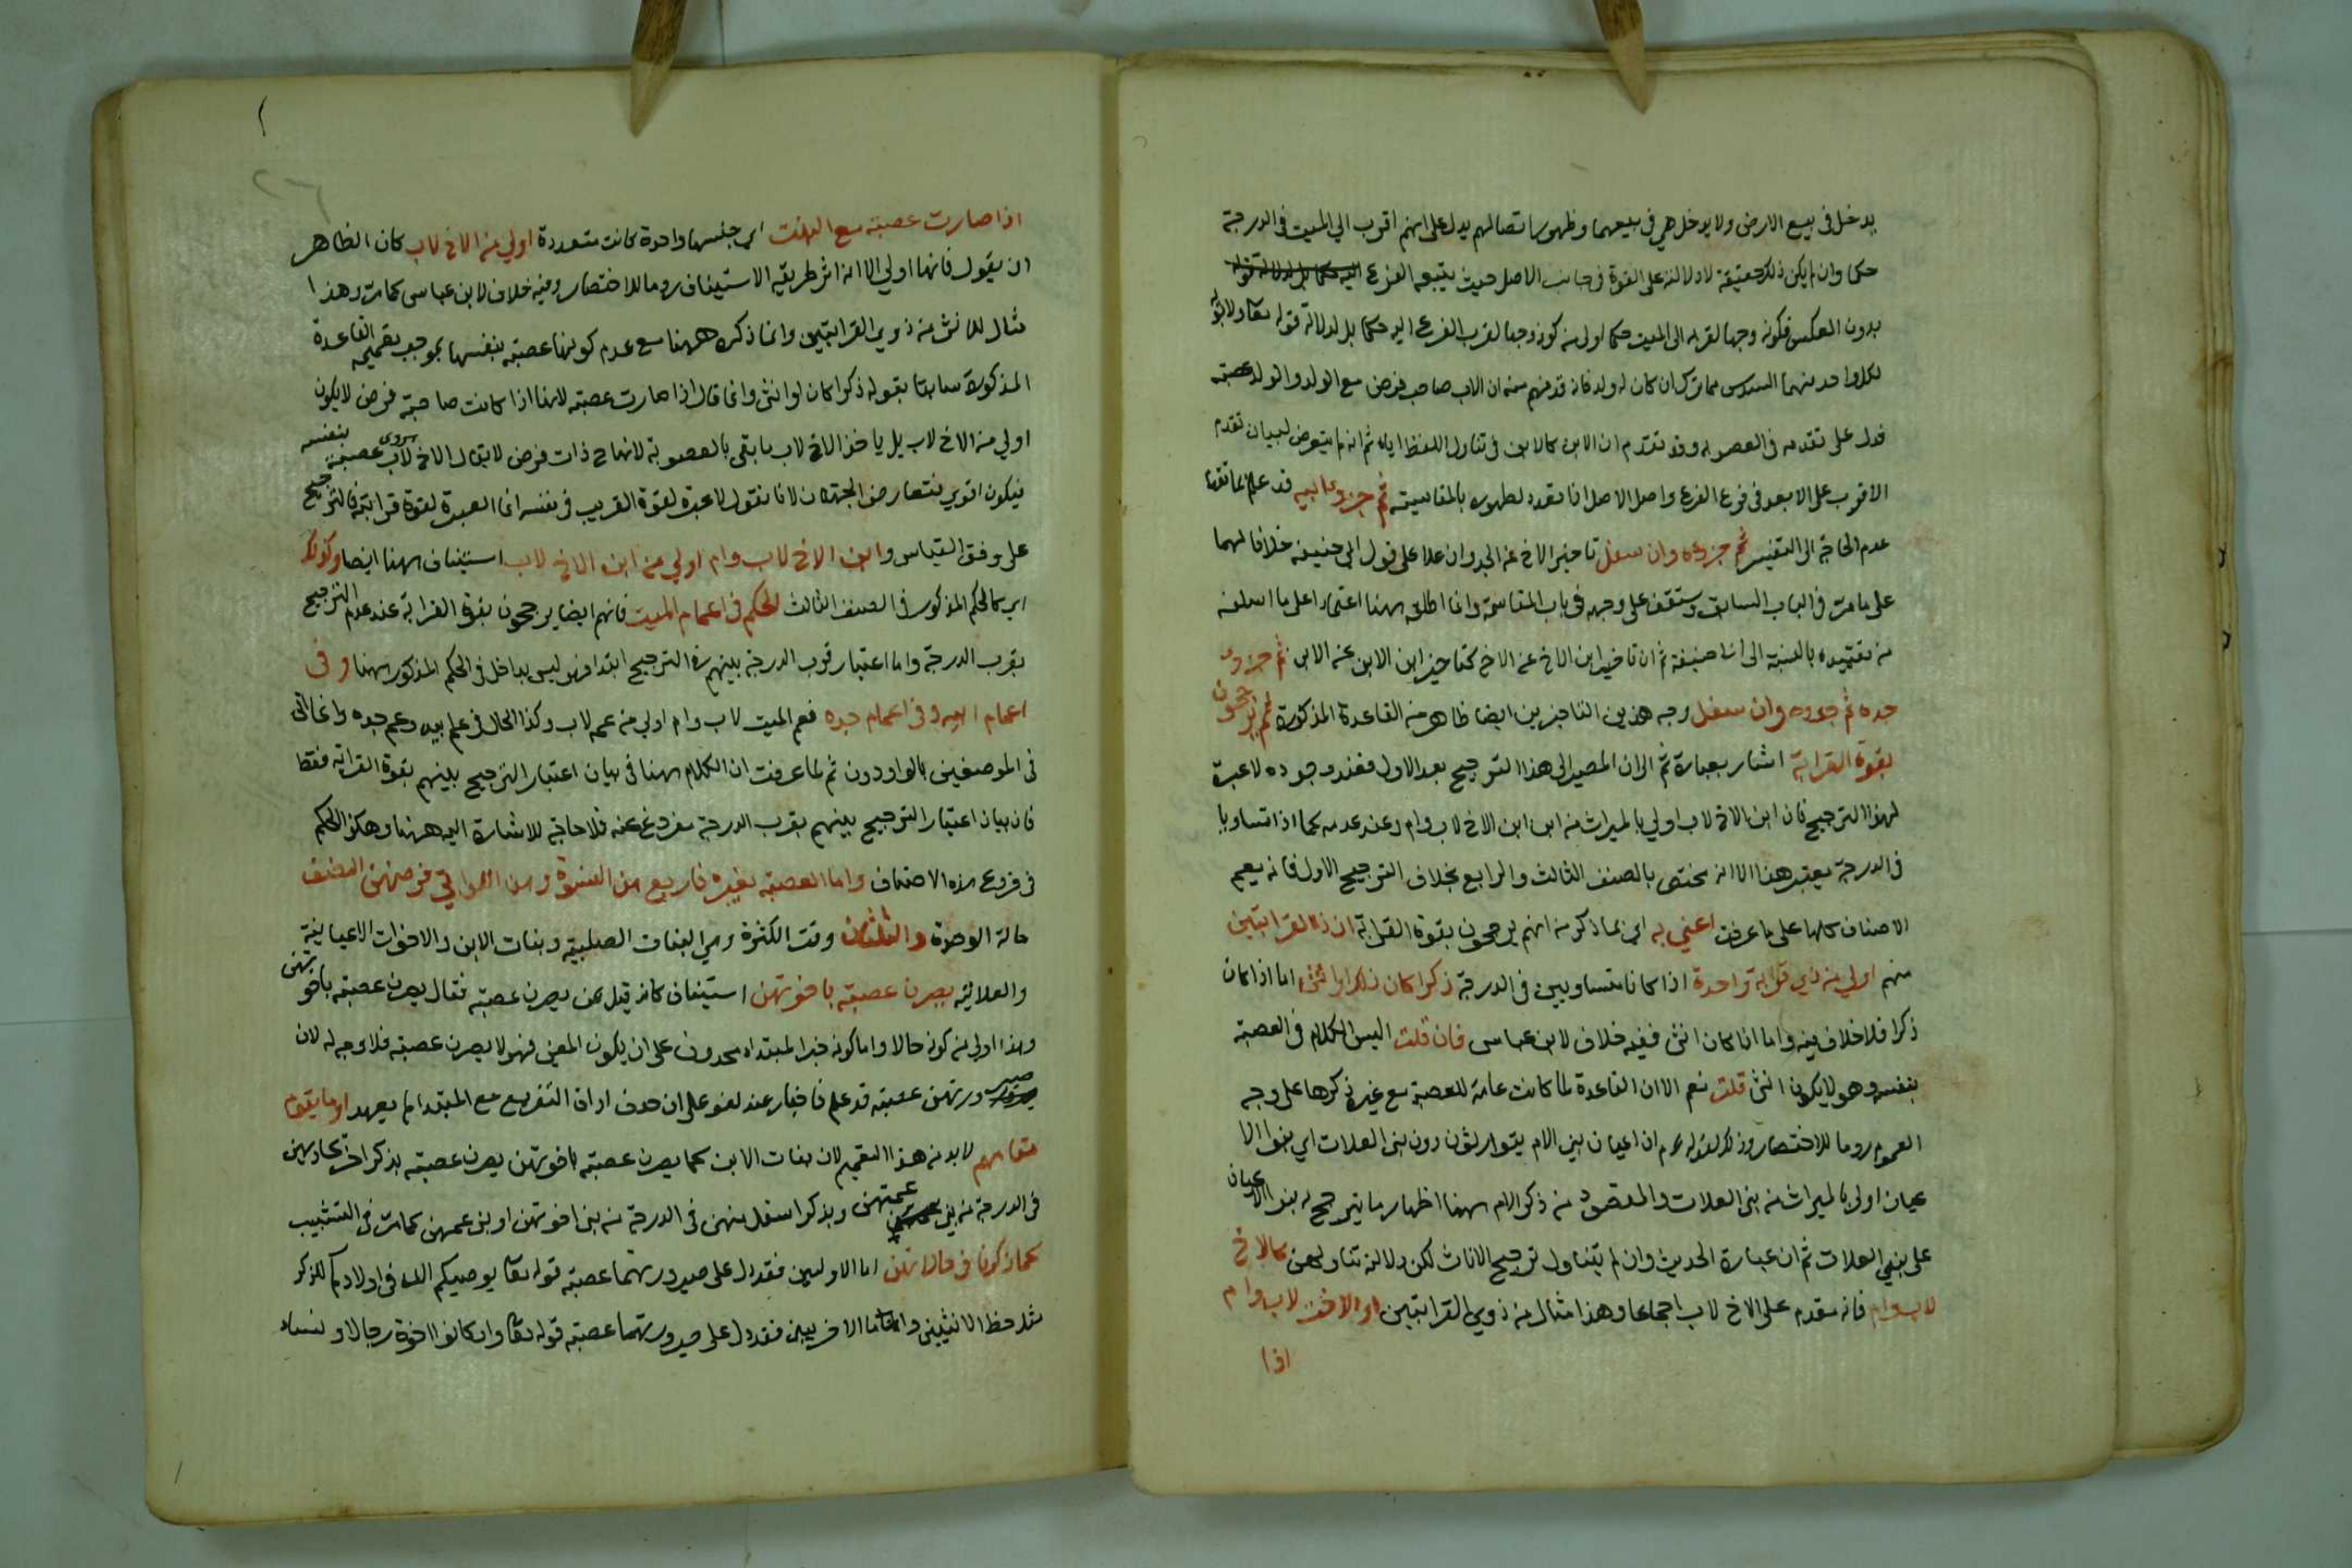 يدخل في بيع الارض ولا يدخل هي في بيعهما وظهور اتصالهم يدل على انهم اقرب الي الميت في الدرجة
حكما وان لم يكن ذلك حقيقة لا دلالته على القوة في جانب الاصل حيث يتبعه الفرع
بدون العكس فكونه وجها لقربه الى الميت حكما اولى من كونه وجها لقرب الفرع اليه حكما بل لدلالة قوله تعا ولابويه
لكل واحد منهما السدس مما ترك ان كان له ولد فانه قد فهم منه ان الاب صاحب فرض مع الولد والولد عصبته
فدل على تقدمه في العصوبه وقد تقدم ان الابن كالابن في تناول اللفظ اياه ثم انه لم يتعرض لبيان تقدم
الاقرب على الابعد في فرع الفرع واصل الاصل لظهوره بالمقايسة ثم جزء ابيه قد علم مما تقدم
عدم الحاجة الى التفسير ثم جزءه وان سفل تاخير الاخ عن الجد وان علا على قول ابي حنيفة خلافا لهما
على ما مرت في الباب السابق وستقف على وجهه في باب المقاسمة وانما اطلقه ههنا اعتمادا على ما اسلفه
من تقييده بالنسبة الى ابي حنيفة ثم ان تاخير ابن الاخ عن الاخ كتاخير ابن الابن عن الابن ثم جزء
جده ثم جزءه وان سفل وجه هذين التاخيرين ايضا ظاهر من القاعدة المذكورة ثم يرجحون
بقوة القرابة اشار بعبارة ثم الى ان المصير الى هذا الترجيح بعد الاول فعند وجوده لا عبرة
لهذا الترجيح فان ابن الاخ لاب اولي بالميراث من ابن ابن الاخ لاب وام وعند عدمه كما اذا تساويا
في الدرجة يعتبر هذا الا انه مختص بالصنف الثالث والرابع بخلاف الترجيح الاول فانه يعم
الاصناف كلها على ما عرفت اعني به اي بما ذكر من انهم يرجحون بقوة القرابة ان ذا القرابتين
منهم اولى من ذي قرابة واحدة اذا كانا متساويين في الدرجة ذكرا كان ذلك او انثى اما اذا كان
ذكرا فلا خلاف فيه واما اذا كان انثى ففيه خلاف لابن عباس فان قلت اليس الكلام في العصبة
بنفسه وهو لا يكون انثى قلت نعم الا ان القاعدة لما كانت عامة للعصبة مع غيره ذكرها على وجه
العموم روما للاختصار وذلك لقوله عم ان اعيان بني الام يتوارثون دون بني العلات اي بنوا الا
عيان اولى بالميراث من بني العلات والمقصود من ذكر الام ههنا اظهار ما يترجح به بنوا الاعيان
على بني العلات ثم ان عبارة الحديث وان لم يتناول ترجيح الاناث لكن دلالته تناولهن كالاخ
لاب وام فانه مقدم على الاخ لاب اجماعا وهذا مثال من ذوي القرابتين او الاخت لاب وام
اذا
اذا صارت عصبة مع البنت اي جنسها واحدة كانت متعددة اولي من الاخ لاب كان الظاهر
ان يقول فانها اولي الا انه اثر طريقة الاستيناف روما للاختصار وفيه خلاف لابن عباس كما مرت وهذا
مثال للانثى من ذوي القرابتين وانما ذكره ههنا مع عدم كونها عصبة بنفسها بموجب تعميم القاعدة
المذكورة سابقا بقوله ذكرا كان او انثى وانما قال اذا صارت عصبة لانها اذا كانت صاحبة فرض لا يكون
اولي من الاخ لاب بل ياخذ الاخ لاب ما بقى بالعصوبة لانها ح ذات فرض لا يقال الاخ لاب عصبة بنفسه
فيكون اقوي فتعارض الجهتان لانا نقول لا عبرة لقوة القريب في نفسه انما العبرة لقوة قرابته فالترجيح
على وفق القياس وابن الاخ لاب وام اولي من ابن الاخ لاب استيناف ههنا ايضا وكذلك
اي كالحكم المذكور في الصنف الثالث الحكم في اعمام الميت فانهم ايضا يرجحون بقوة القرابة عند عدم الترجيح
بقرب الدرجة واما اعتبار قرب الدرجة بينهم في الترجيح ابتداء فهو ليس بداخل في الحكم المذكور ههنا وفي
اعمام ابيه وفي اعمام جده فعم الميت لاب وام اولي من عمه لاب وكذا الحال في عم ابيه وعم جده وانما اتى
في الموضعين بالواو دون ثم لما عرفت ان الكلام ههنا في بيان اعتبار الترجيح بينهم بقوة القرابة فقط
فان بيان اعتبار الترجيح بينهم بقرب الدرجة مفروغ عنه فلا حاجة للاشارة اليه ههنا وهكذا الحكم
في فروع هذه الاصناف واما العصبة بغيره فاربع من النسوة وهن اللواتي فرضهن النصف
حالة الوحدة والثلثان وقت الكثرة وهي البنات الصلبية وبنات الابن والاخوات الاعيانية
والعلاتية يصرن عصبة باخوتهن استيناف كانه قيل بمن يصرن عصبة فقال يصرن عصبة باخوتهن
وهذا اولي من كونه حالا واما كونه خبر المبتداء محذوف على ان يكون المعنى فهولا يصرن عصبة فلا وجه له لان
صيرورتهن عصبة قد علم فاخباره عنه لغو على ان حذف اداة التفريع مع المبتدا لم يعهد او ما يقوم
مقامهم لا بد من هذا التعميم لان بنات الابن كما يصرن عصبة باخوتهن يصرن عصبة بذكر اخر يحاذيهن
في الدرجة من بني عمهن وبذكر اسفل منهن في الدرجة من بني اخوتهن او بني عمهن كما مرت في التشبيب
كما ذكرنا في حالاتهن اما الاوليين فقد دل على صيرورتهما عصبة قوله تعا يوصيكم الله في اولادكم للذكر
مثل حظ الانثيين واما الاخريين فقد دل على صيرورتهما عصبة قوله تعا وان كانوا اخوة رجالا ونساء